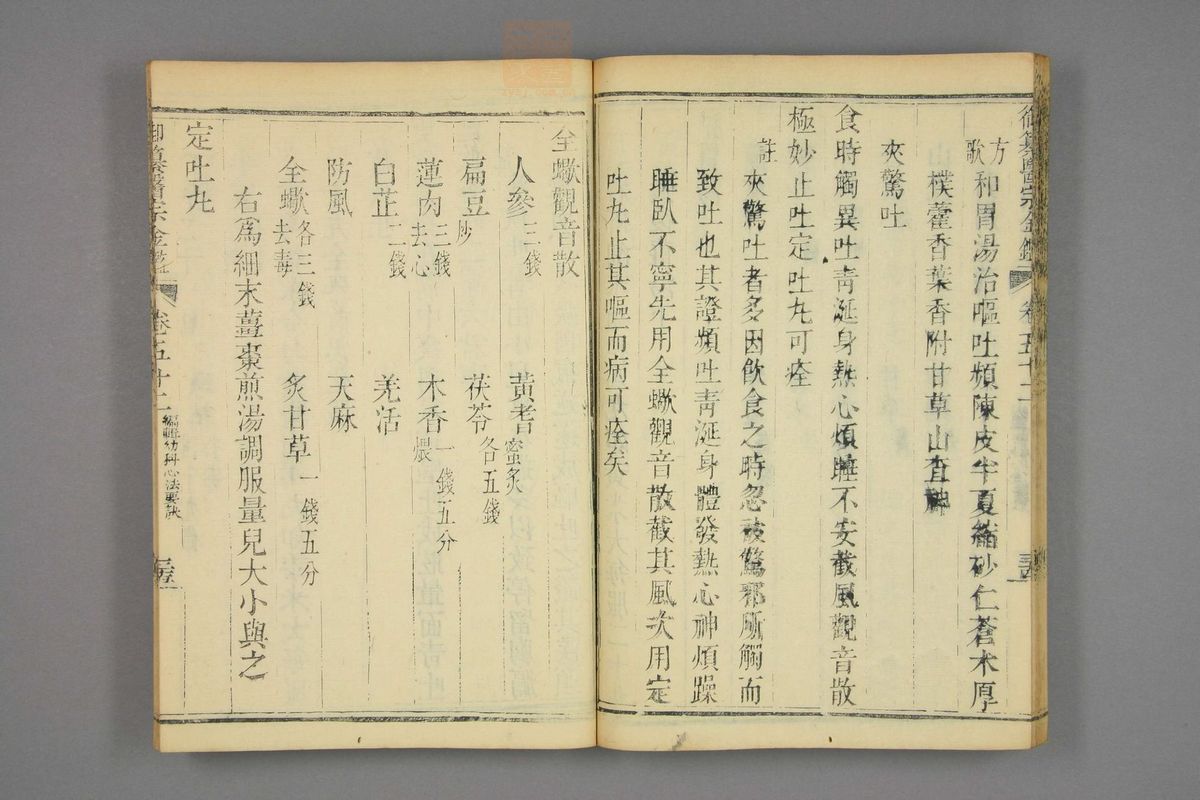 御纂醫宗金鑑 卷五十二
方歌 和胃湯治嘔吐頻陳皮半夏縮砂仁蒼朮厚
山樸藿香葉香附甘草山查神
夾驚吐
食時觸異吐青涎身熱心煩睡不安截風觀音散
極妙止吐定吐丸可痊
註 夾驚吐者多因飲食之時忽被驚邪所觸而
致吐也其證頻吐青涎身體發熱心神煩躁
睡臥不寧先用全蠍觀音散截其風次用定
吐丸止其嘔而病可痊矣
全蠍觀音散
人參二錢 黃耆蜜炙
扁豆炒 茯苓各五錢
蓮肉三錢去心 木香一錢五分煨
白芷二錢 羌活
防風 天麻
全蠍各三錢去毒 炙甘草一錢五分
右爲細末薑棗煎湯調服量兒大小與之
定吐丸
御纂醫宗金鑑 卷五十二 編輯幼科心法要訣